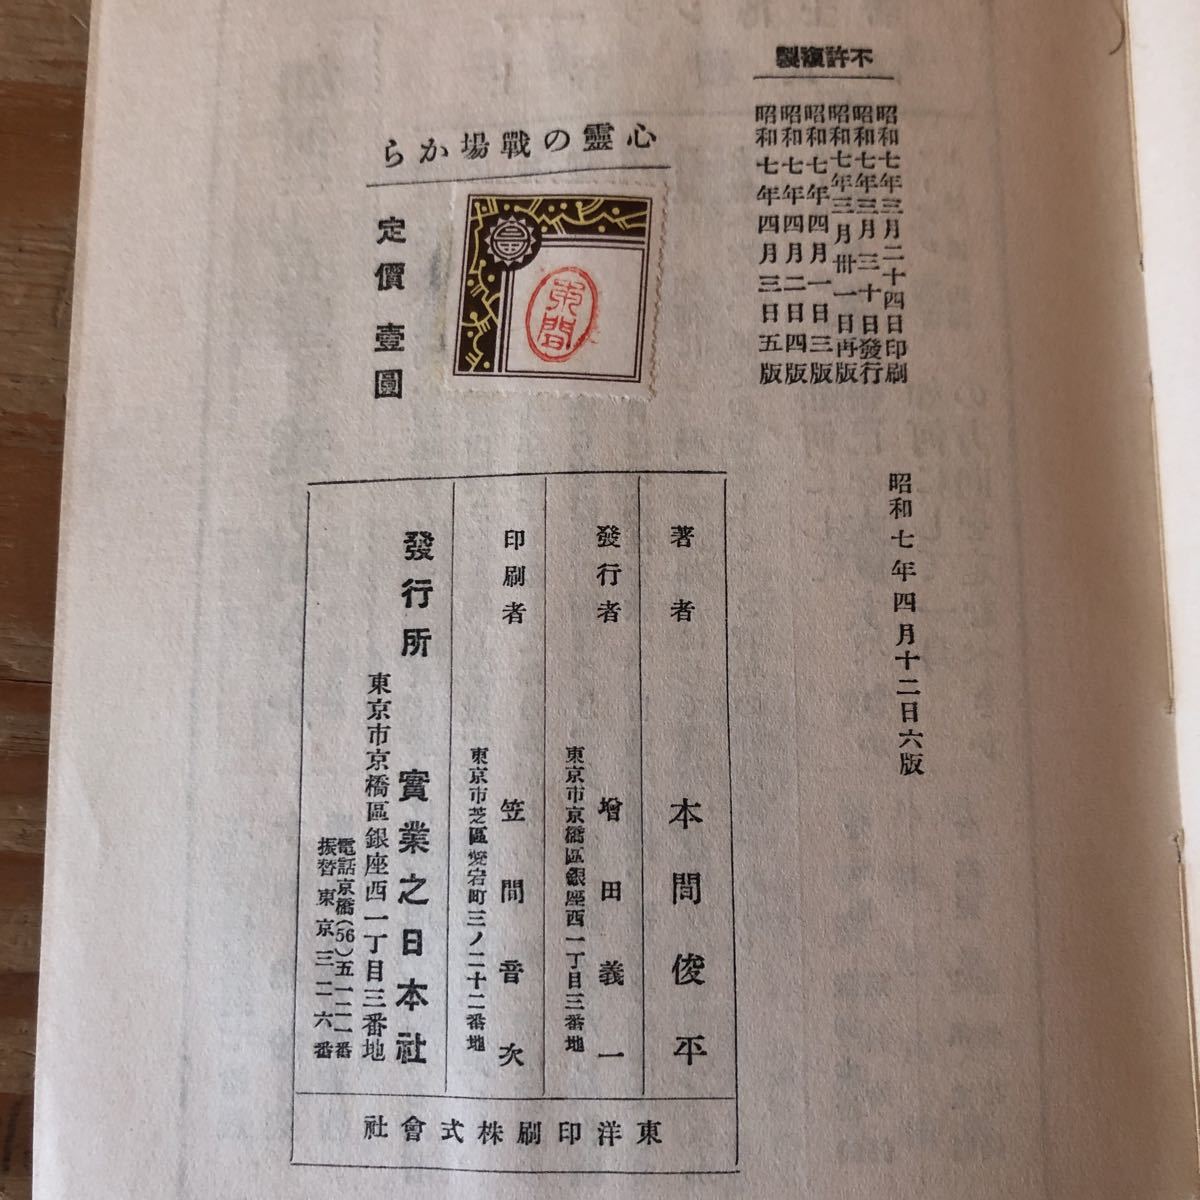 不許複製
昭和七年三月二十四日印刷
昭和七年三月三十日發行
昭和七年三月卅一日再版
昭和七年四月一日三版
昭和七年四月二日四版
昭和七年四月三日五版
昭和七年四月十二日六版
心靈の戰場から
本間
定價壹圓
著者 本間俊平
發行者 東京市京橋區銀座西一丁目三番地 增田義一
印刷者 東京市芝區愛宕町三ノ二十二番地 笠間音次
發行所 實業之日本社
東京市京橋區銀座西一丁目三番地
電話京橋(56)五一二一番
振替東京三二六番
東洋印刷株式會社